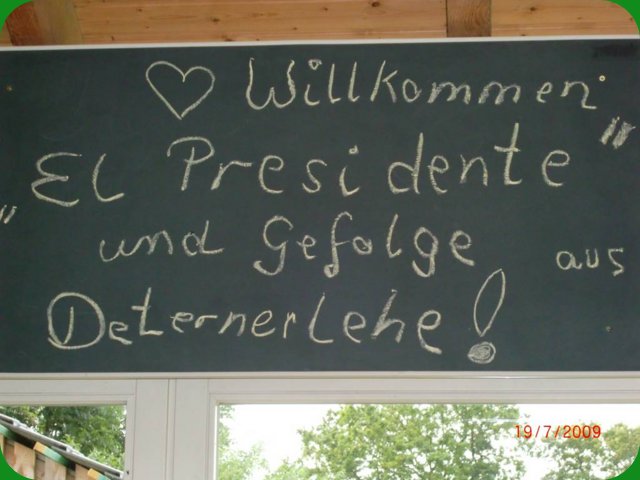 ♡ Willkommen
„El Presidente"
und Gefolge aus
Deternerlehe!
19/7/2009